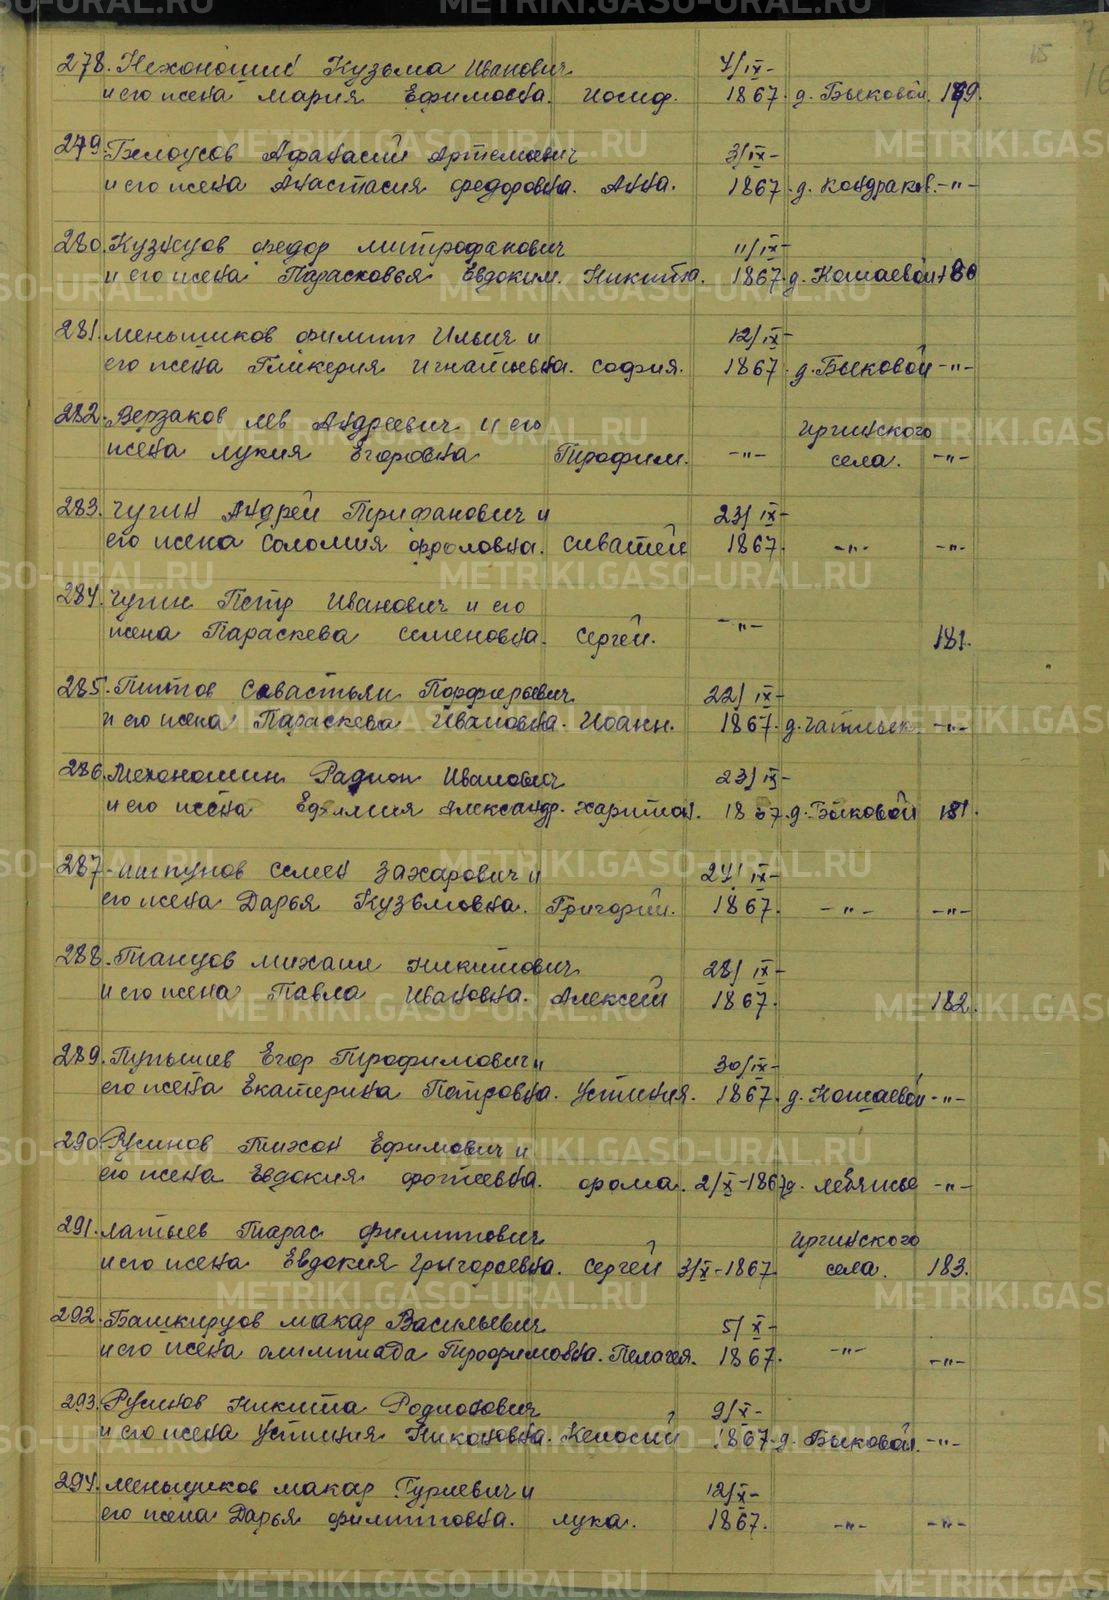 15
278. Нехоношин Кузьма Иванович 7/IX-
и его жена Мария Ефимовна. Иосиф. 1867. д. Быковой. 179.
279. Белоусов Афанасий Артемьевич 3/IX-
и его жена Анастасия Федоровна. Анна. 1867. д. Кондраков. -"-
280. Кузнецов Федор Митрофанович 11/IX-
и его жена Парасковья Евдоким. Никита. 1867. д. Кошаевой 180
281. Меньшиков Филипп Ильич и 12/IX-
его жена Гликерия Игнатьевна. София. 1867. д. Быковой -"-
282. Верзаков Лев Андреевич и его Иргинского
жена Лукия Егоровна Трофим. -"- села. -"-
283. Чугин Андрей Трифанович и 23/IX-
его жена Соломия Фроловна. Саватей 1867. -"- -"-
284. Чугин Петр Иванович и его
жена Параскева Семеновна. Сергей. -"- 181.
285. Питтов Савастьян Порфирьевич 22/IX-
и его жена Параскева Ивановна. Иоанн. 1867. д. -"-
286. Мехоношин Радион Иванович 23/IX-
и его жена Ефимия Александр. Харитон. 1867. д. Быковой 181.
287. Шипунов Семен Захарович и 24/IX-
его жена Дарья Кузьмовна. Григорий. 1867. -"- -"-
288. Танцов Михаил Никитович 28/IX-
и его жена Павла Ивановна. Алексей 1867. 182.
289. Пупышев Егор Трофимович и 30/IX-
его жена Екатерина Петровна. Устиния. 1867. д. Кошаевой -"-
290. Русинов Тихон Ефимович и
его жена Евдокия Фотеевна. Фома. 2/X-1867 д. Лебяжье -"-
291. Латыев Тарас Филиппович Иргинского
и его жена Евдокия Григорьевна. Сергей 3/X-1867 села. 183.
292. Башкирцов Макар Васильевич 5/X-
и его жена Олимпиада Трофимовна. Пелагея. 1867. -"- -"-
293. Русинов Никита Родионович 9/X-
и его жена Устиния Никоновна. 1867. д. Быковой. -"-
294. Меньщиков Макар Гуриевич и 12/X-
его жена Дарья Филипповна. Лука. 1867. -"- -"-